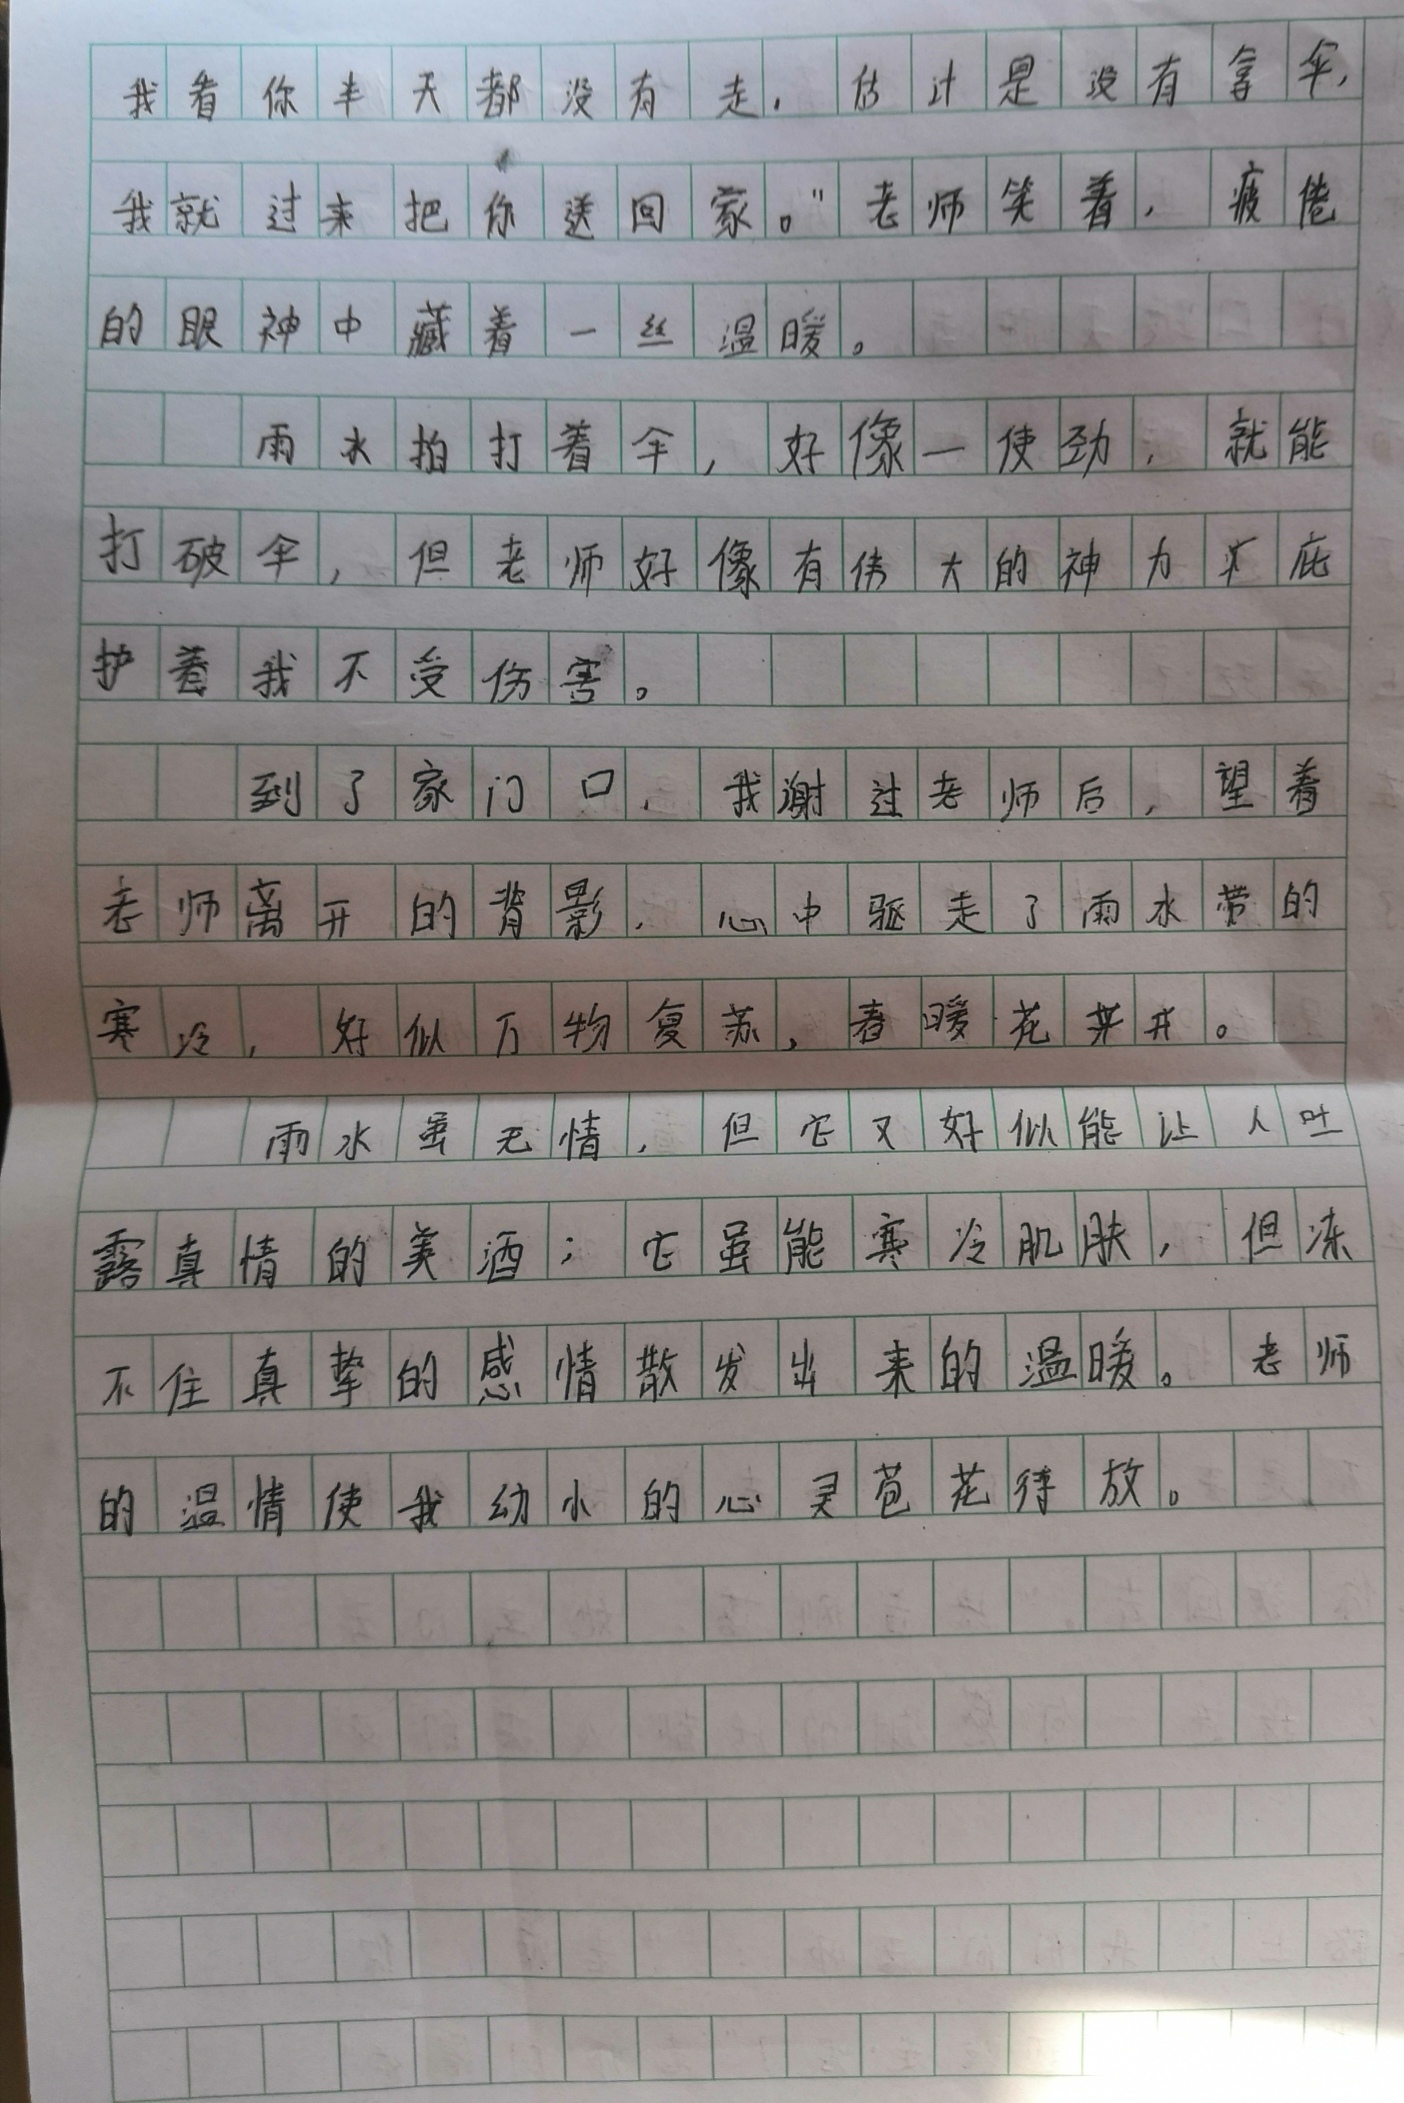 我看你半天都没有走，估计是没有拿伞，
我就过来把你送回家。"老师笑着，疲倦
的眼神中藏着一丝温暖。
雨水拍打着伞，好像一使劲，就能
打破伞，但老师好像有伟大的神力来庇
护着我不受伤害。
到了家门口，我谢过老师后，望着
老师离开的背影，心中驱走了雨水带的
寒冷，好似万物复苏，春暖花开。
雨水虽无情，但它又好似能让人吐
露真情的美酒；它虽能寒冷肌肤，但冻
不住真挚的感情散发出来的温暖。老师
的温情使我幼小的心灵苞花待放。